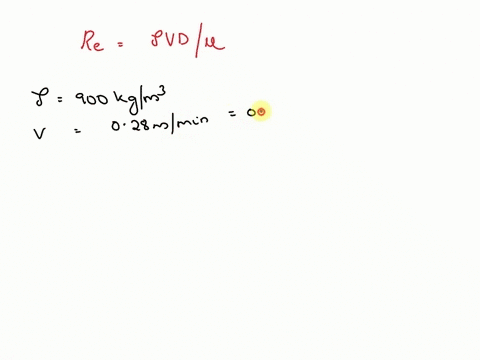 Re = ρVD/μ
ρ = 900 kg/m³
V = 0.28 m/min = 00